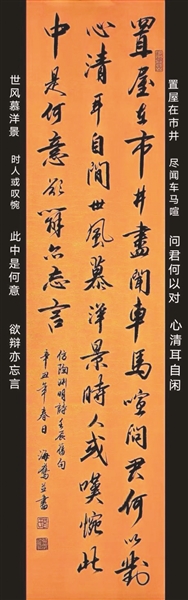 置屋在市井 尽闻车马喧 问君何以对 心清耳自闲
置屋在市井盡聞車馬喧問君何以對
心清耳自閒世風慕洋景時人或嘆惋此
中是何意欲辯亦忘言
仿陶渊明詩壬辰舊句
辛丑年春日 海書
世风慕洋景 时人或叹惋 此中是何意 欲辩亦忘言